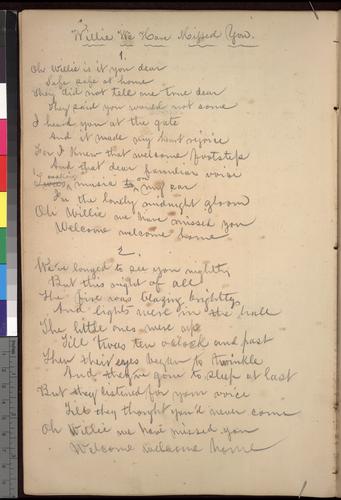 Willie We Have Missed You.
1.
Oh Willie is it you dear
Safe safe at home
They did not tell me true dear
They said you would not come
I heard you at the gate
And it made my heart rejoice
For I knew that welcome footstep
And that dear familiar voice
making music on my ear
In the lonely midnight gloom
Oh Willie we have missed you
Welcome welcome home
2.
We've longed to see you nightly
But this night of all
The fire was blazing brightly
And lights were in the hall
The little ones were up
Till 'twas ten o'clock and past
Then their eyes began to twinkle
And they're gone to sleep at last
But they listened for your voice
Till they thought you'd never come
Oh Willie we have missed you
Welcome welcome home